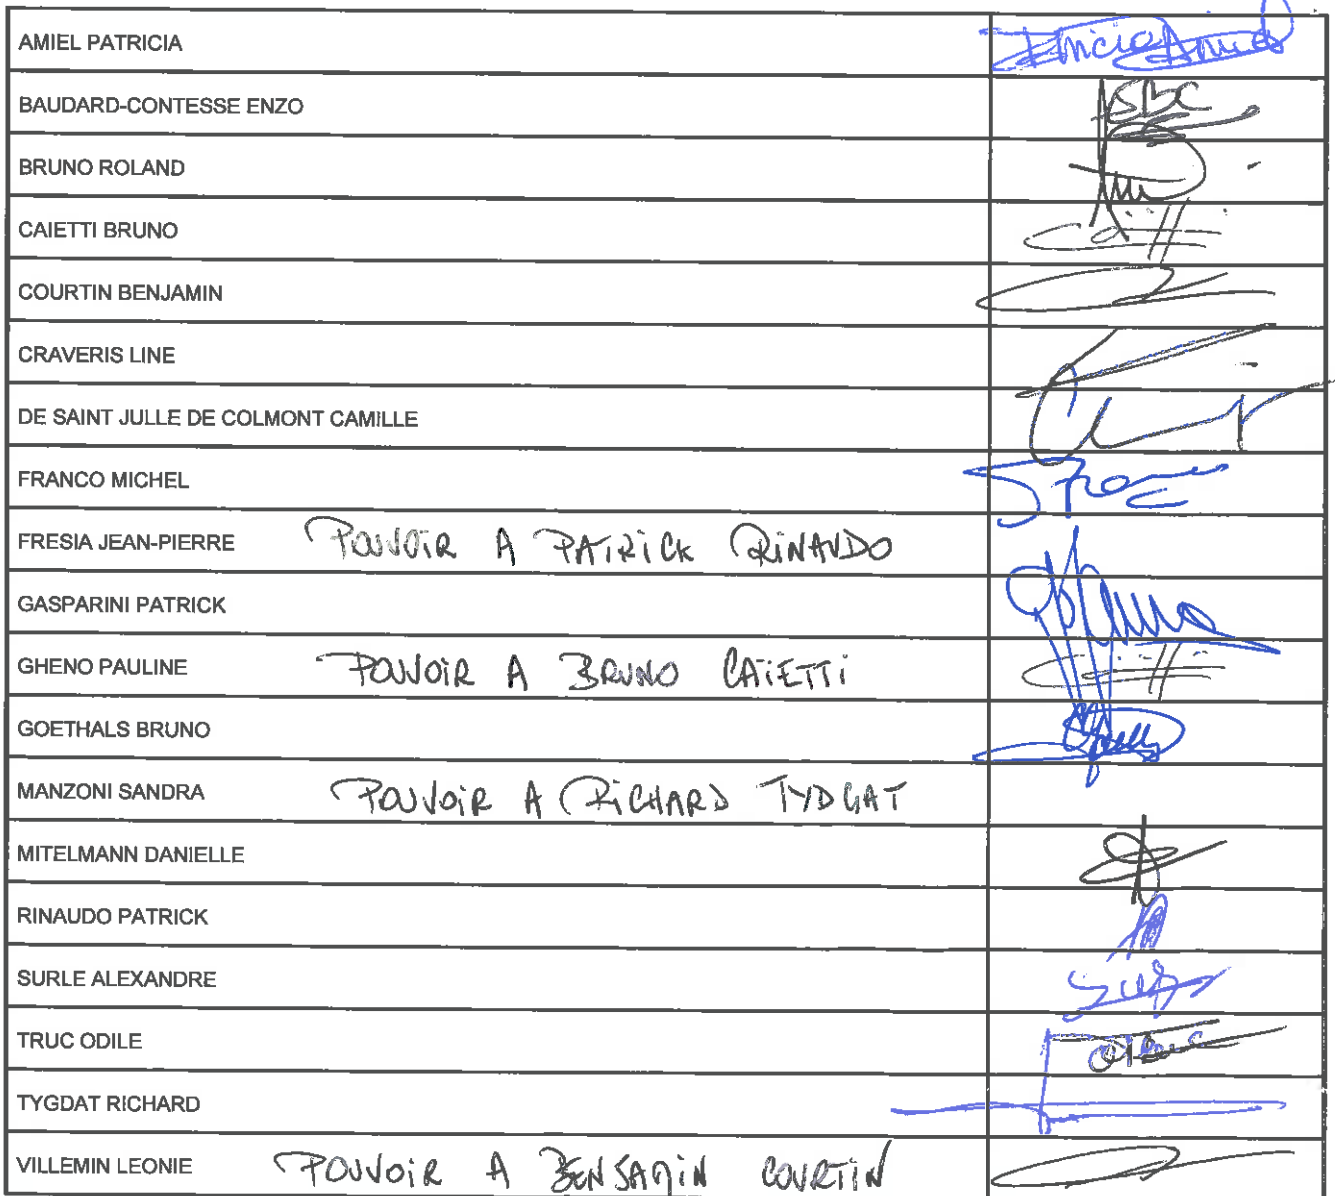 AMIEL PATRICIA
BAUDARD-CONTESSE ENZO
BRUNO ROLAND
CAIETTI BRUNO
COURTIN BENJAMIN
CRAVERIS LINE
DE SAINT JULLE DE COLMONT CAMILLE
FRANCO MICHEL
FRESIA JEAN-PIERRE POUVOIR A PATRICK RINAUDO
GASPARINI PATRICK
GHENO PAULINE POUVOIR A BRUNO CAIETTI
GOETHALS BRUNO
MANZONI SANDRA POUVOIR A RICHARD TYDGAT
MITELMANN DANIELLE
RINAUDO PATRICK
SURLE ALEXANDRE
TRUC ODILE
TYGDAT RICHARD
VILLEMIN LEONIE POUVOIR A BENJAMIN COURTIN